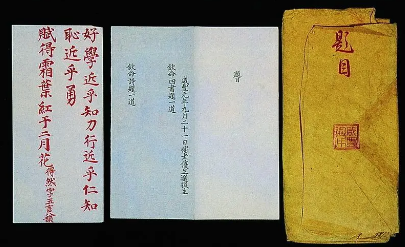 題目
題目
咸豐元年九月二十一日
欽命四書題一道
欽命詩題一道
好學近乎知力行近乎仁知
恥近乎勇
賦得霜葉紅于二月花 得然字五言